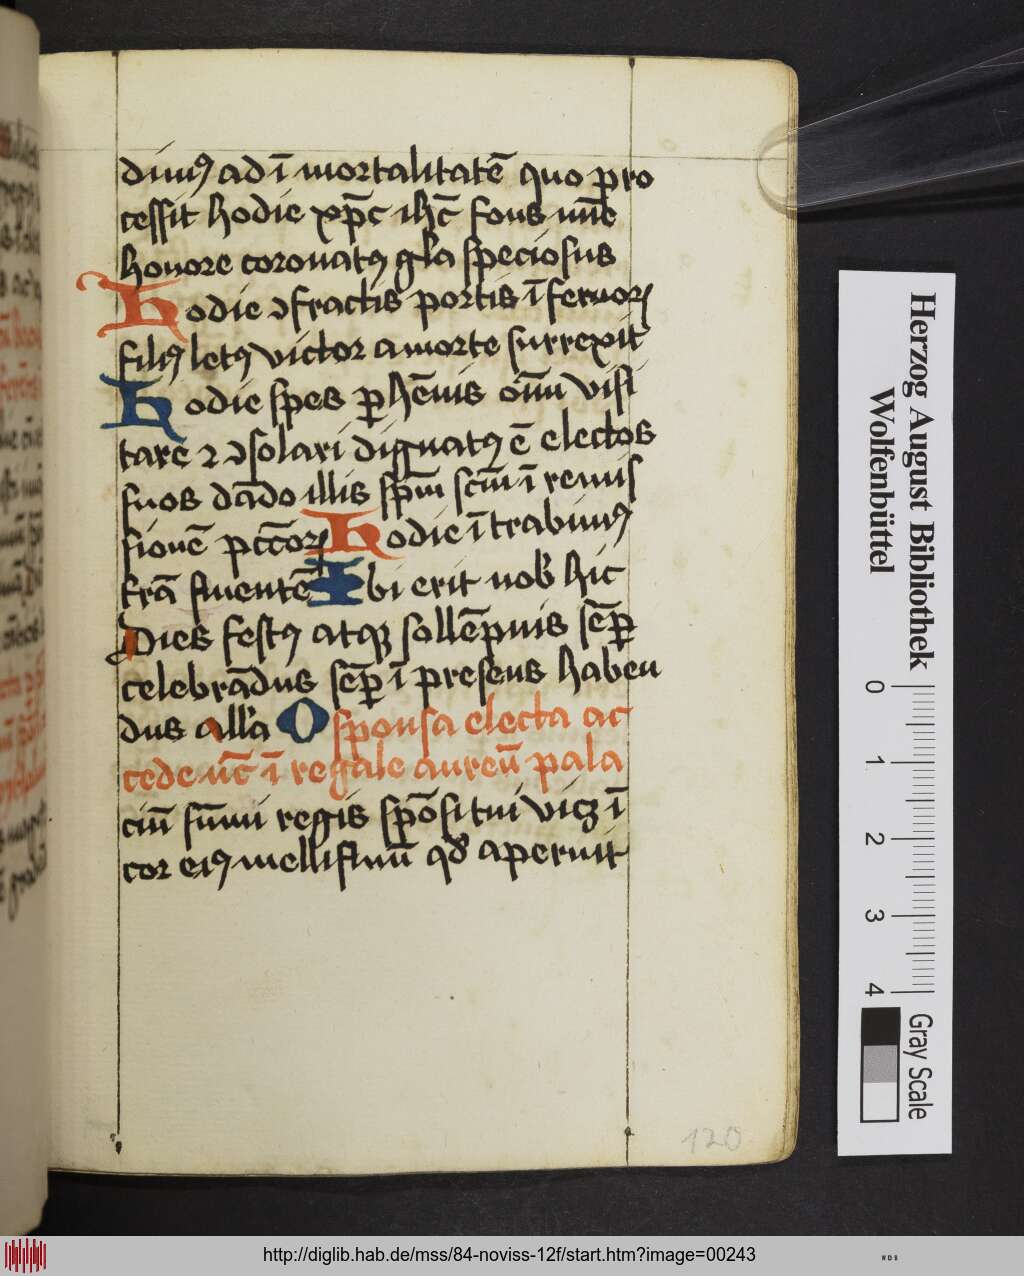 dimꝰ ad ī mortalitatē quo pro
cessit hodie xp̄c ih̄c fons vite
honore coronatꝰ gl̄a speciosus
Hodie ꝯfractis portis ī fernorꝝ
filiꝰ letꝰ victor a morte surrexit
Hodie spes ꝑhēnis om̄ visi
tare ⁊ ꝯsolari dignatꝰ ē electos
suos dādo illis sp̄m scm̄ ī remis
sionē pctōꝝ Hodie ītrabimꝰ
tr̄ā fluentē Ibi erit nob̄ hic
Dies festꝰ atqꝫ sollēpnis sēꝑ
celebrādus sēꝑ ī presens haben
dus all̄a O sponsa electa ac
cede nūc ī regale aureū pala
ciū sūmi regis spōsi tui vicꝫ ī
cor eiꝰ mellifluū qd̄ aperuit
120
Herzog August Bibliothek
Wolfenbüttel
0 1 2 3 4
Gray Scale
http://diglib.hab.de/mss/84-noviss-12f/start.htm?image=00243